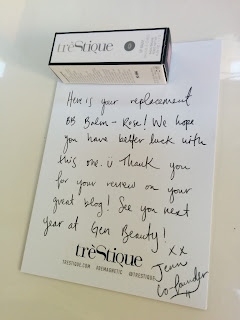 trèStique
Here is your replacement
BB Balm - Rose! We hope
you have better luck with
this one. ü Thank you
for your review on your
great blog! See you next
year at Gen Beauty!
xx
trèStique
Jenn
co-founder
TRESTIQUE.COM #BEMAGNETIC @TRESTIQUE